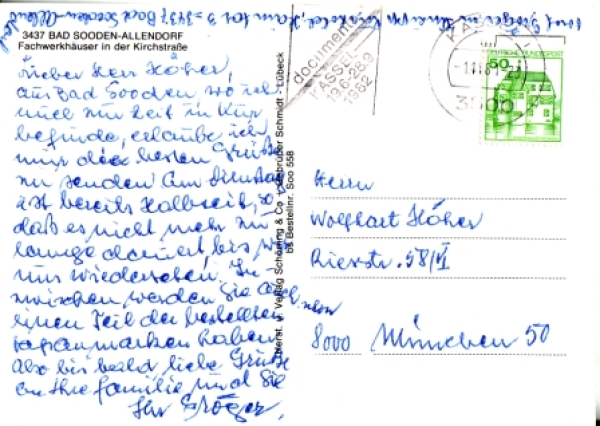 3437 BAD SOODEN-ALLENDORF
Fachwerkhäuser in der Kirchstraße
Lieber Herr Höher,
aus Bad Sooden, wo ich
mich zur Zeit in Kur
befinde, erlaube ich
mir die besten Grüße
zu senden. Am Dienstag
ist bereits Halbzeit, so
daß es nicht mehr zu
lange dauert, bis wir
uns wiedersehen. In-
zwischen werden Sie auch schon
einen Teil der bestellten
Japanmarken haben.
Also bis bald, liebe Grüße
an Ihre Familie und Sie
Ihr Gröger
Herst. u. Verlag Schöning & Co + Gebrüder Schmidt - Lübeck
bs Bestellnr. Soo 558
documenta
KASSEL
19.6.-28.9
1982
3500
DEUTSCHE BUNDESPOST
50
Herrn
Wolfhart Höher
Rierstr. 58/VI
8000 München 50
3437 Bad Sooden-Allendorf